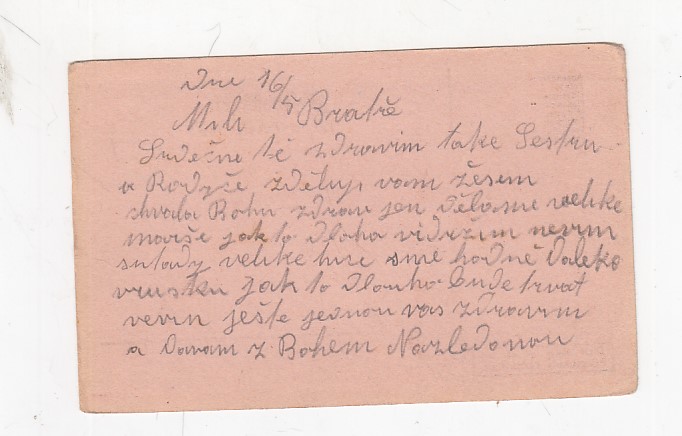 Dne 16/5
Milí Bratře
Srdečne tě zdravim take Sestru
a Rodyče zděluji vam žesem
chvala Bohu zdrav jen děláme velike
marše jak to dloho vidržim nevim
sutady velike hice sme hodně Daleko
vrusku jak to dlouho bude trvat
nevim ješte jednou vas zdravim
a Davam z Bohem Nazledanou